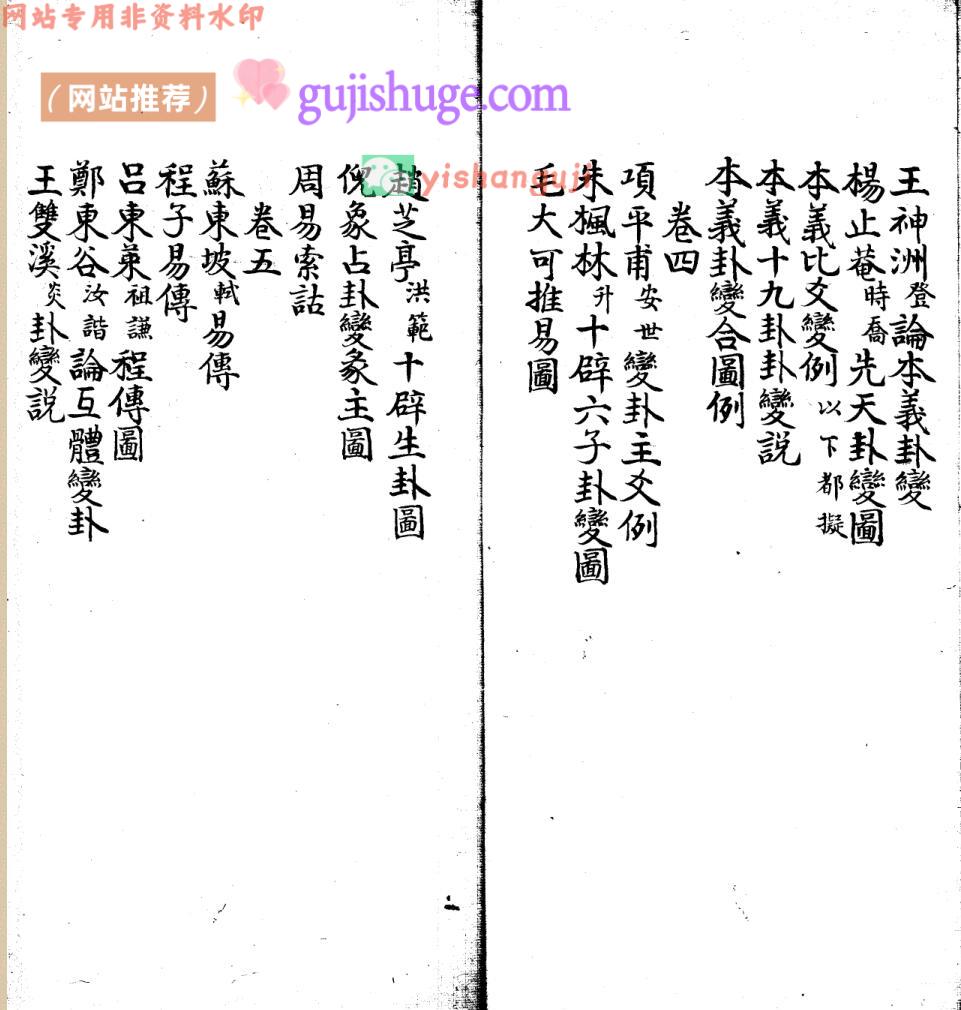 网站专用非资料水印
（网站推荐）
gujishuge.com
yishanguji
王神洲登論本義卦變
楊止菴時喬先天卦變圖
本義比爻變例以下都擬
本義十九卦卦變説
本義卦變合圖例
卷四
項平甫安世變卦主爻例
朱楓林升十辟六子卦變圖
毛大可推易圖
趙芝亭洪範十辟生卦圖
俔象占卦變彖主圖
周易索詁
卷五
蘇東坡軾易傳
程子易傳
吕東萊祖謙程傳圖
鄭東谷汝諧論互體變卦
王雙溪炎卦變説